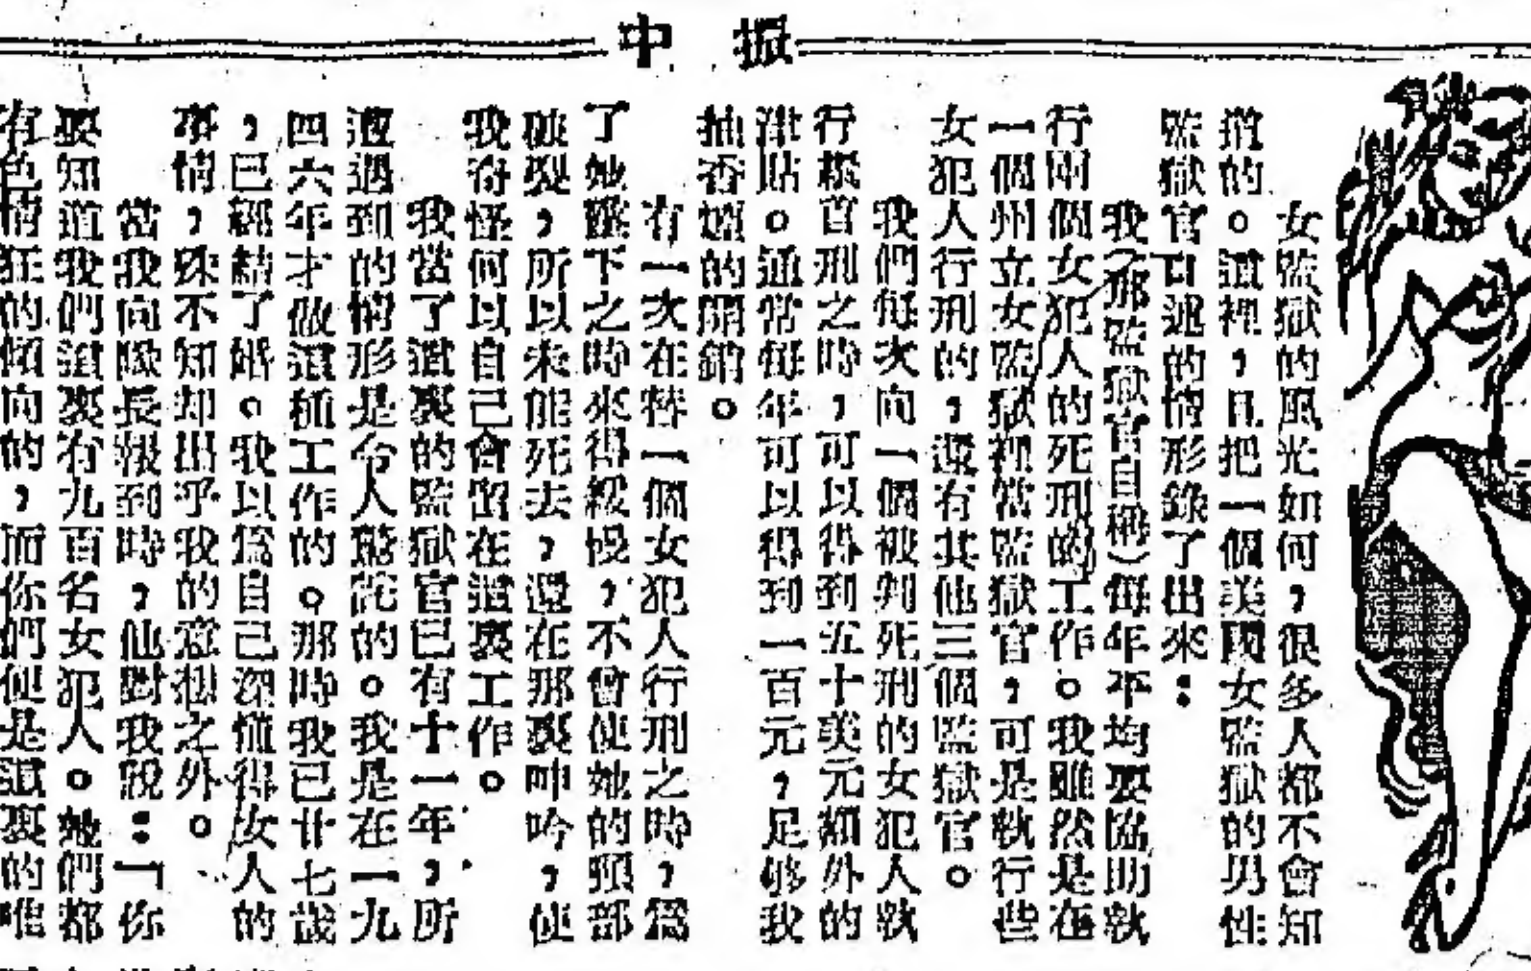 振中
女監獄的風光如何，很多人都不會知
道的。這裡，且把一個美國女監獄的男性
監獄官口述的情形錄了出來：
我（那監獄官自稱）每年平均要協助執
行兩個女犯人的死刑的工作。我雖然是在
一個州立女監獄裡當監獄官，可是執行些
女犯人行刑的，還有其他三個監獄官。
我們每次向一個被判死刑的女犯人執
行極首刑之時，可以得到五十美元額外的
津貼。通常每年可以得到一百元，足够我
抽香烟的開銷。
有一次在替一個女犯人行刑之時，爲
了她蹬下之時來得緩慢，不會使她的頸部
破裂，所以未能死去，還在那裏呻吟，使
我奇怪何以自己會留在這裏工作。
我當了這裏的監獄官已有十一年，所
遭遇到的情形是令人驚詫的。我是在一九
四六年才做這種工作的。那時我已廿七歲
，已經結了婚。我以爲自己深懂得女人的
事情，殊不知却出乎我的意想之外。
當我向獄長報到時，他對我說：「你
要知道我們這裏有九百名女犯人。她們都
有色情狂的傾向的，而你們便是這裏的唯